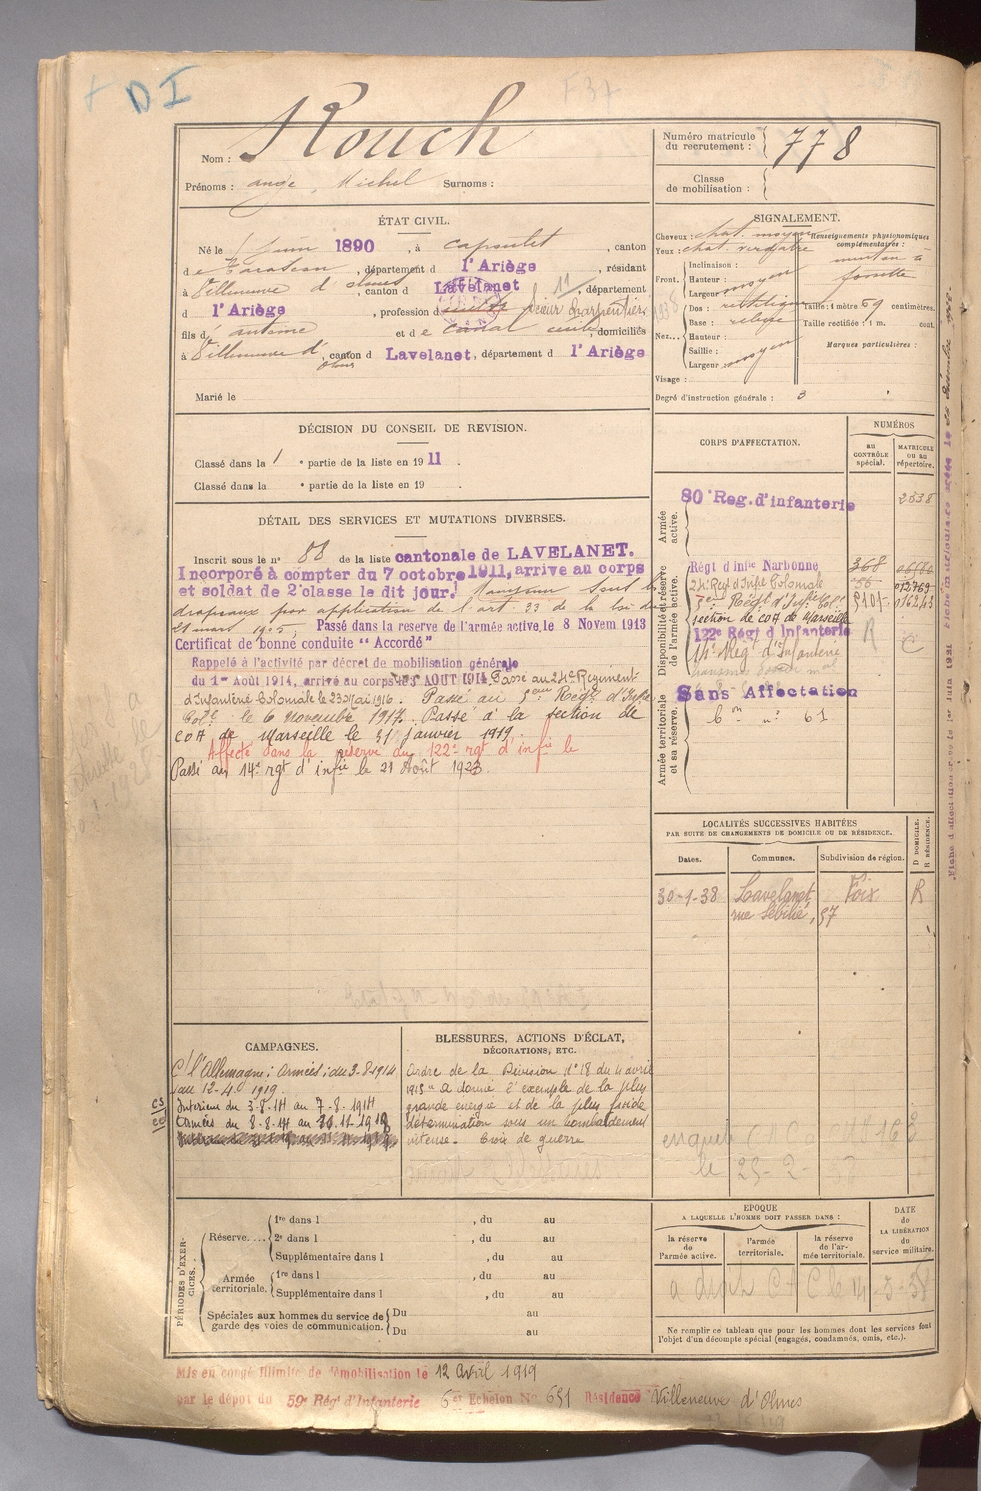 DI
Nom : Rouch
Prénoms : ange, Michel Surnoms :
Numéro matricule du recrutement : 778
Classe de mobilisation :
ÉTAT CIVIL.
Né le 1 Juin 1890, à Capoulet, canton
de Tarascon, département d l'Ariège, résidant
à Villeneuve d'olmes, canton d Lavelanet, département
d l'Ariège, profession d Scieur charpentier
fils d' antoine et de Canal domiciliés
à Villeneuve d'olmes, canton d Lavelanet, département d l'Ariège
Marié le
SIGNALEMENT.
Cheveux : chat. moyen
Yeux : chat. verdâtre
Renseignements physionomiques complémentaires :
menton à fossette
Front. Inclinaison :
Hauteur : moyen
Largeur :
Nez... Dos : rectiligne
Base : relevée
Hauteur :
Saillie : moyen
Largeur :
Visage :
Taille : 1 mètre 69 centimètres.
Taille rectifiée : 1 m. cent.
Marques particulières :
Degré d'instruction générale : 3
DÉCISION DU CONSEIL DE REVISION.
Classé dans la 1 e partie de la liste en 1911.
Classé dans la e partie de la liste en 19 .
CORPS D'AFFECTATION.
NUMÉROS
au CONTRÔLE spécial.
MATRICULE ou au répertoire.
Armée active.
80e Reg. d'infanterie 2538
Disponibilité et réserve de l'armée active.
Régt d'infie Narbonne 368
24e Régt d'Infie Coloniale 012769
3eme Régt d'Infie Colle
section de COA de Marseille
122e Régt d'Infanterie
14e Régt d'Infanterie
Armée territoriale et sa réserve.
Sans Affectation
DÉTAIL DES SERVICES ET MUTATIONS DIVERSES.
Inscrit sous le n° 88 de la liste cantonale de LAVELANET.
Incorporé à compter du 7 octobre 1911, arrive au corps
et soldat de 2e classe le dit jour. Maintenu sous les
drapeaux par application de l'art 33 de la loi du
21 mars 1905, Passé dans la reserve de l'armée active, le 8 Novem 1913
Certificat de bonne conduite "Accordé"
Rappelé à l'activité par décret de mobilisation générale
du 1er Août 1914, arrivé au corps le 3 AOUT 1914. Passé au 24e Régiment
d'Infanterie Coloniale le 23 Mai 1916. Passé au 3eme Régt d'Infie
Colle le 6 novembre 1917. Passé à la section de
COA de Marseille le 31 janvier 1919.
Affecté dans la réserve du 122e rgt d'infie le
Passé au 14e rgt d'infie le 21 Août 1923.
LOCALITÉS SUCCESSIVES HABITÉES
PAR SUITE DE CHANGEMENTS DE DOMICILE OU DE RÉSIDENCE.
Dates. Communes. Subdivision de région. D DOMICILE. R RÉSIDENCE.
30-1-38 Lavelanet Foix R
CAMPAGNES.
C/ l'Allemagne : Armées : du 3-8-1914
au 12-4-1919.
Intérieur du 3-8-14 au 7-8-1914
Armées du 8-8-14 au
BLESSURES, ACTIONS D'ÉCLAT,
DÉCORATIONS, ETC.
Ordre de la Division n° 18 du 4 avril
1918 "A donné l'exemple de la plus
grande énergie et de la plus froide
détermination sous un bombardement
intense. Croix de guerre
PÉRIODES D'EXERCICES.
Réserve....
1re dans l , du au
2e dans l , du au
Supplémentaire dans l , du au
Armée territoriale.
1re dans l , du au
Supplémentaire dans l , du au
Spéciales aux hommes du service de garde des voies de communication.
Du au
Du au
EPOQUE
A LAQUELLE L'HOMME DOIT PASSER DANS :
la réserve de l'armée active.
l'armée territoriale.
la réserve de l'armée territoriale.
DATE de LA LIBÉRATION du service militaire.
Ne remplir ce tableau que pour les hommes dont les services font
l'objet d'un décompte spécial (engagés, condamnés, omis, etc.).
Mis en congé illimité de démobilisation le 12 Avril 1919
par le dépôt du 59e Régt d'Infanterie 6e Echelon No 651 Résidence Villeneuve d'Olmes